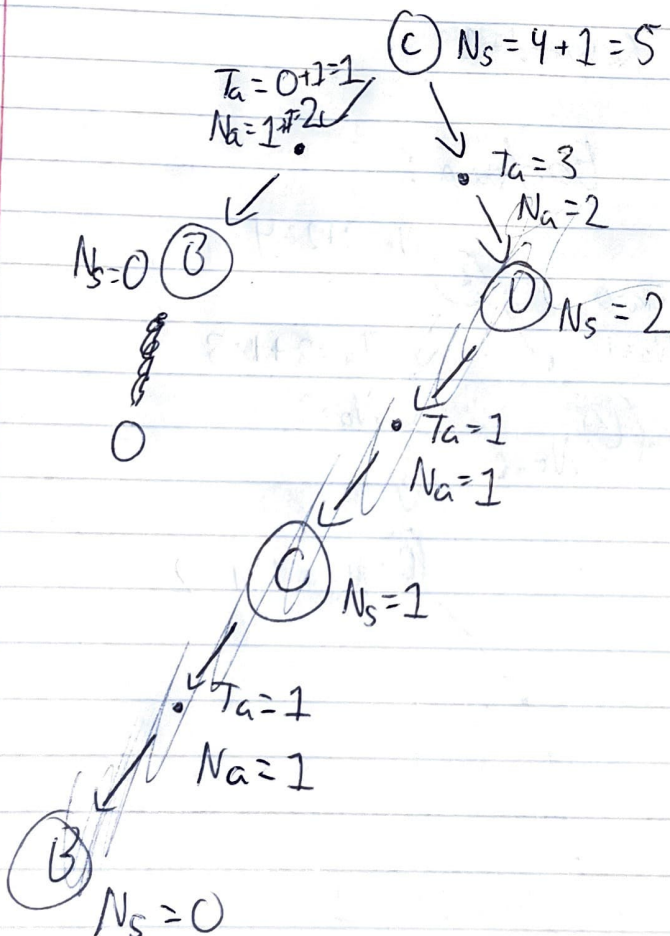 C Ns = 4+1 = 5
Ta = 0+1=1
Na = 1+1=2
Ta = 3
Na = 2
Ns=0 B
D Ns = 2
0
Ta = 1
Na = 1
C Ns = 1
Ta = 1
Na = 1
B
Ns = 0